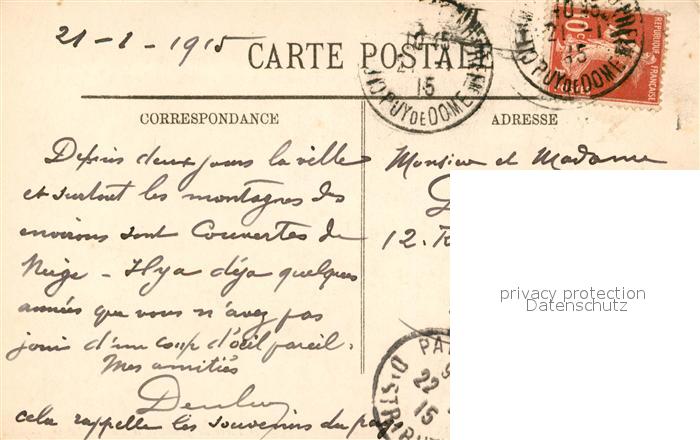 21-1-1915
CARTE POSTALE
15
PUY DE DOME
15
PUY DE DOME
10c
REPUBLIQUE FRANÇAISE
CORRESPONDANCE
ADRESSE
Depuis deux jours la ville
et surtout les montagnes des
environs sont couvertes de
Neige - Il y a déja quelques
années que vous n'avez pas
joui d'un coup d'œil pareil.
Mes amitiés
cela rappelle les souvenirs du pays
Monsieur et Madame
12.
PA
22
15
DISTR
privacy protection
Datenschutz